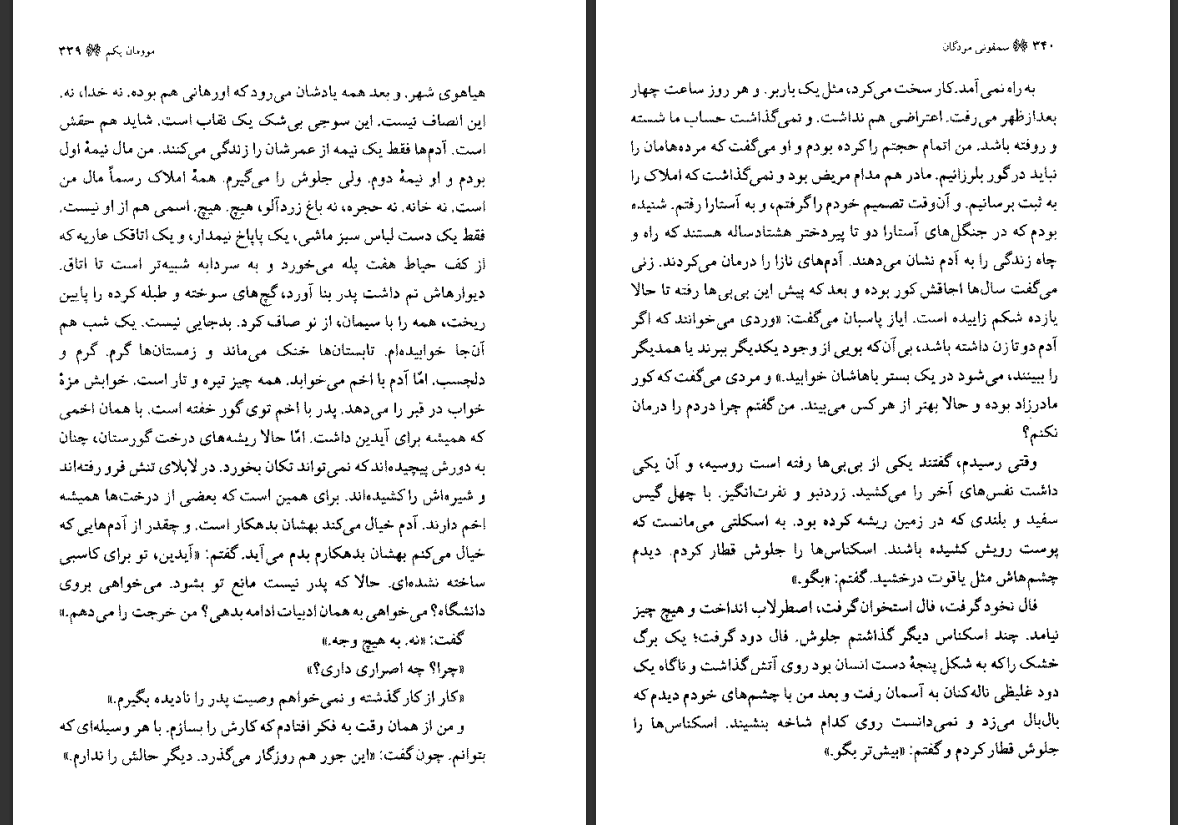 ۳۴۰ سمفونی مردگان
به راه نمی‌آمد. کار سخت می‌کرد، مثل یک باربر. و هر روز ساعت چهار
بعدازظهر می‌رفت. اعتراضی هم نداشت. و نمی‌گذاشت حساب ما شسته
و روفته باشد. من اتمام حجتم را کرده بودم و او می‌گفت که مرده‌هامان را
نباید در گور بلرزانیم. مادر هم مدام مریض بود و نمی‌گذاشت که املاک را
به ثبت برسانیم. و آن‌وقت تصمیم خودم را گرفتم، و به آستارا رفتم. شنیده
بودم که در جنگل‌های آستارا دو تا پیردختر هشتادساله هستند که راه و
چاه زندگی را به آدم نشان می‌دهند. آدم‌های نازا را درمان می‌کردند. زنی
می‌گفت سال‌ها اجاقش کور بوده و بعد که پیش این بی‌بی‌ها رفته تا حالا
یازده شکم زاییده است. ایاز پاسبان می‌گفت: «وردی می‌خوانند که اگر
آدم دو تا زن داشته باشد، بی آن‌که بویی از وجود یکدیگر ببرند یا همدیگر
را ببینند، می‌شود در یک بستر باهاشان خوابید.» و مردی می‌گفت که کور
مادرزاد بوده و حالا بهتر از هر کس می‌بیند. من گفتم چرا دردم را درمان
نکنم؟
وقتی رسیدم، گفتند یکی از بی‌بی‌ها رفته است روسیه، و آن یکی
داشت نفس‌های آخر را می‌کشید. زردنبو و نفرت‌انگیز. با چهل گیس
سفید و بلندی که در زمین ریشه کرده بود. به اسکلتی می‌مانست که
پوست رویش کشیده باشند. اسکناس‌ها را جلوش قطار کردم. دیدم
چشم‌هاش مثل یاقوت درخشید. گفتم: «بگو.»
فال نخود گرفت، فال استخوان گرفت، اصطرلاب انداخت و هیچ چیز
نیامد. چند اسکناس دیگر گذاشتم جلوش. فال دود گرفت؛ یک برگ
خشک را که به شکل پنجهٔ دست انسان بود روی آتش گذاشت و ناگاه یک
دود غلیظی ناله‌کنان به آسمان رفت و بعد من با چشم‌های خودم دیدم که
بال‌بال می‌زد و نمی‌دانست روی کدام شاخه بنشیند. اسکناس‌ها را
جلوش قطار کردم و گفتم: «بیش‌تر بگو.»
موومان یکم ۳۳۹
هیاهوی شهر. و بعد همه یادشان می‌رود که اورهانی هم بوده. نه خدا، نه.
این انصاف نیست. این سوجی بی‌شک یک نقاب است. شاید هم حقش
است. آدم‌ها فقط یک نیمه از عمرشان را زندگی می‌کنند. من مال نیمهٔ اول
بودم و او نیمهٔ دوم. ولی جلوش را می‌گیرم. همهٔ املاک رسماً مال من
است. نه خانه. نه حجره، نه باغ زردآلو، هیچ. هیچ. اسمی هم از او نیست.
فقط یک دست لباس سبز ماشی، یک پاپاخ نیمدار، و یک اتاقک عاریه که
از کف حیاط هفت پله می‌خورد و به سردابه شبیه‌تر است تا اتاق.
دیوارهاش نم داشت پدر بنا آورد، گچ‌های سوخته و طبله کرده را پایین
ریخت، همه را با سیمان، از نو صاف کرد. بدجایی نیست. یک شب هم
آن‌جا خوابیده‌ام. تابستان‌ها خنک می‌ماند و زمستان‌ها گرم. گرم و
دلچسب. امّا آدم با اخم می‌خوابد. همه چیز تیره و تار است. خوابش مزهٔ
خواب در قبر را می‌دهد. پدر با اخم توی گور خفته است. با همان اخمی
که همیشه برای آیدین داشت. امّا حالا ریشه‌های درخت گورستان، چنان
به دورش پیچیده‌اند که نمی‌تواند تکان بخورد. در لابلای تنش فرو رفته‌اند
و شیره‌اش را کشیده‌اند. برای همین است که بعضی از درخت‌ها همیشه
اخم دارند. آدم خیال می‌کند بهشان بدهکار است. و چقدر از آدم‌هایی که
خیال می‌کنم بهشان بدهکارم بدم می‌آید. گفتم: «آیدین، تو برای کاسبی
ساخته نشده‌ای. حالا که پدر نیست مانع تو بشود. می‌خواهی بروی
دانشگاه؟ می‌خواهی به همان ادبیات ادامه بدهی؟ من خرجت را می‌دهم.»
گفت: «نه. به هیچ وجه.»
«چرا؟ چه اصراری داری؟»
«کار از کار گذشته و نمی‌خواهم وصیت پدر را نادیده بگیرم.»
و من از همان وقت به فکر افتادم که کارش را بسازم. با هر وسیله‌ای که
بتوانم. چون گفت: «این جور هم روزگار می‌گذرد. دیگر حالش را ندارم.»